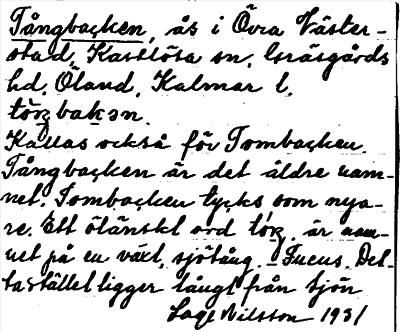 Tångbacken, ås i Övra Väster-
stad, Kastlösa sn. Gräsgårds
hd. Öland, Kalmar l.
tòrgbakən.
Kallas också för Tombacken.
Tångbacken är det äldre nam-
net. Tombacken tycks som nya-
re. Ett öländskt ord tòrg. är nam-
net på en växt, sjötång. - Fucus. Det-
ta stället ligger långt från sjön
Lage Nilsson 1931